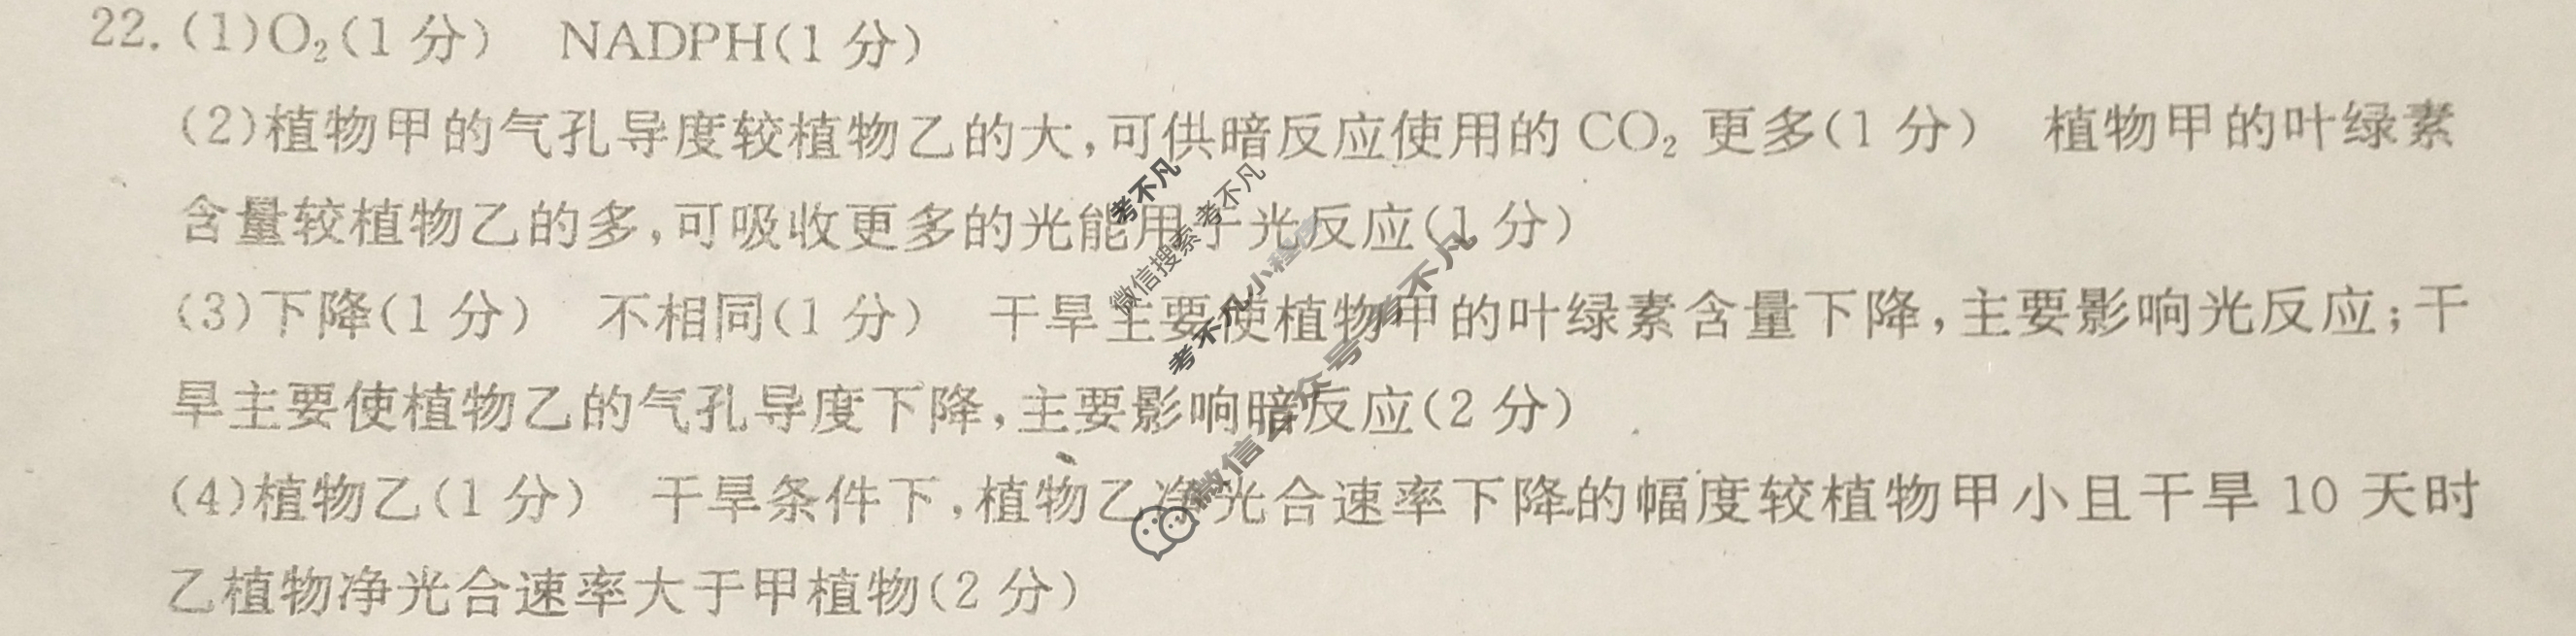 22.(1)O₂(1 分) NADPH(1 分)
(2)植物甲的气孔导度较植物乙的大,可供暗反应使用的 CO₂ 更多(1 分) 植物甲的叶绿素
含量较植物乙的多,可吸收更多的光能用于光反应(1 分)
(3)下降(1 分) 不相同(1 分) 干旱主要使植物甲的叶绿素含量下降,主要影响光反应;干
旱主要使植物乙的气孔导度下降,主要影响暗反应(2 分)
(4)植物乙(1 分) 干旱条件下,植物乙净光合速率下降的幅度较植物甲小且干旱 10 天时
乙植物净光合速率大于甲植物(2 分)
考不凡
微信搜索 考不凡
考不凡小程序
微信公众号 考不凡